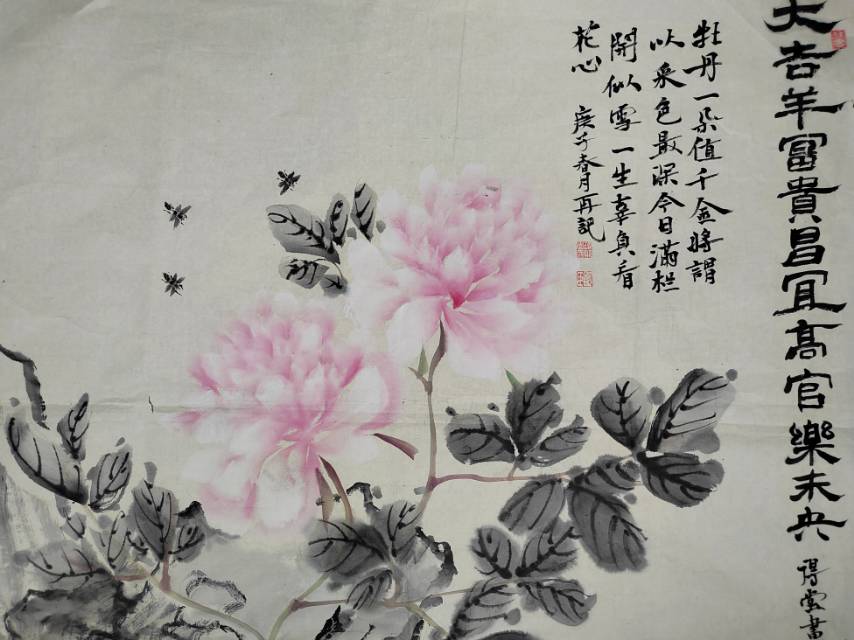 大吉羊富貴昌冝高官樂未央
牡丹一朵值千金將謂
从来色最深今日滿栏
開似雪一生辜負看
花心
庚子春月再記